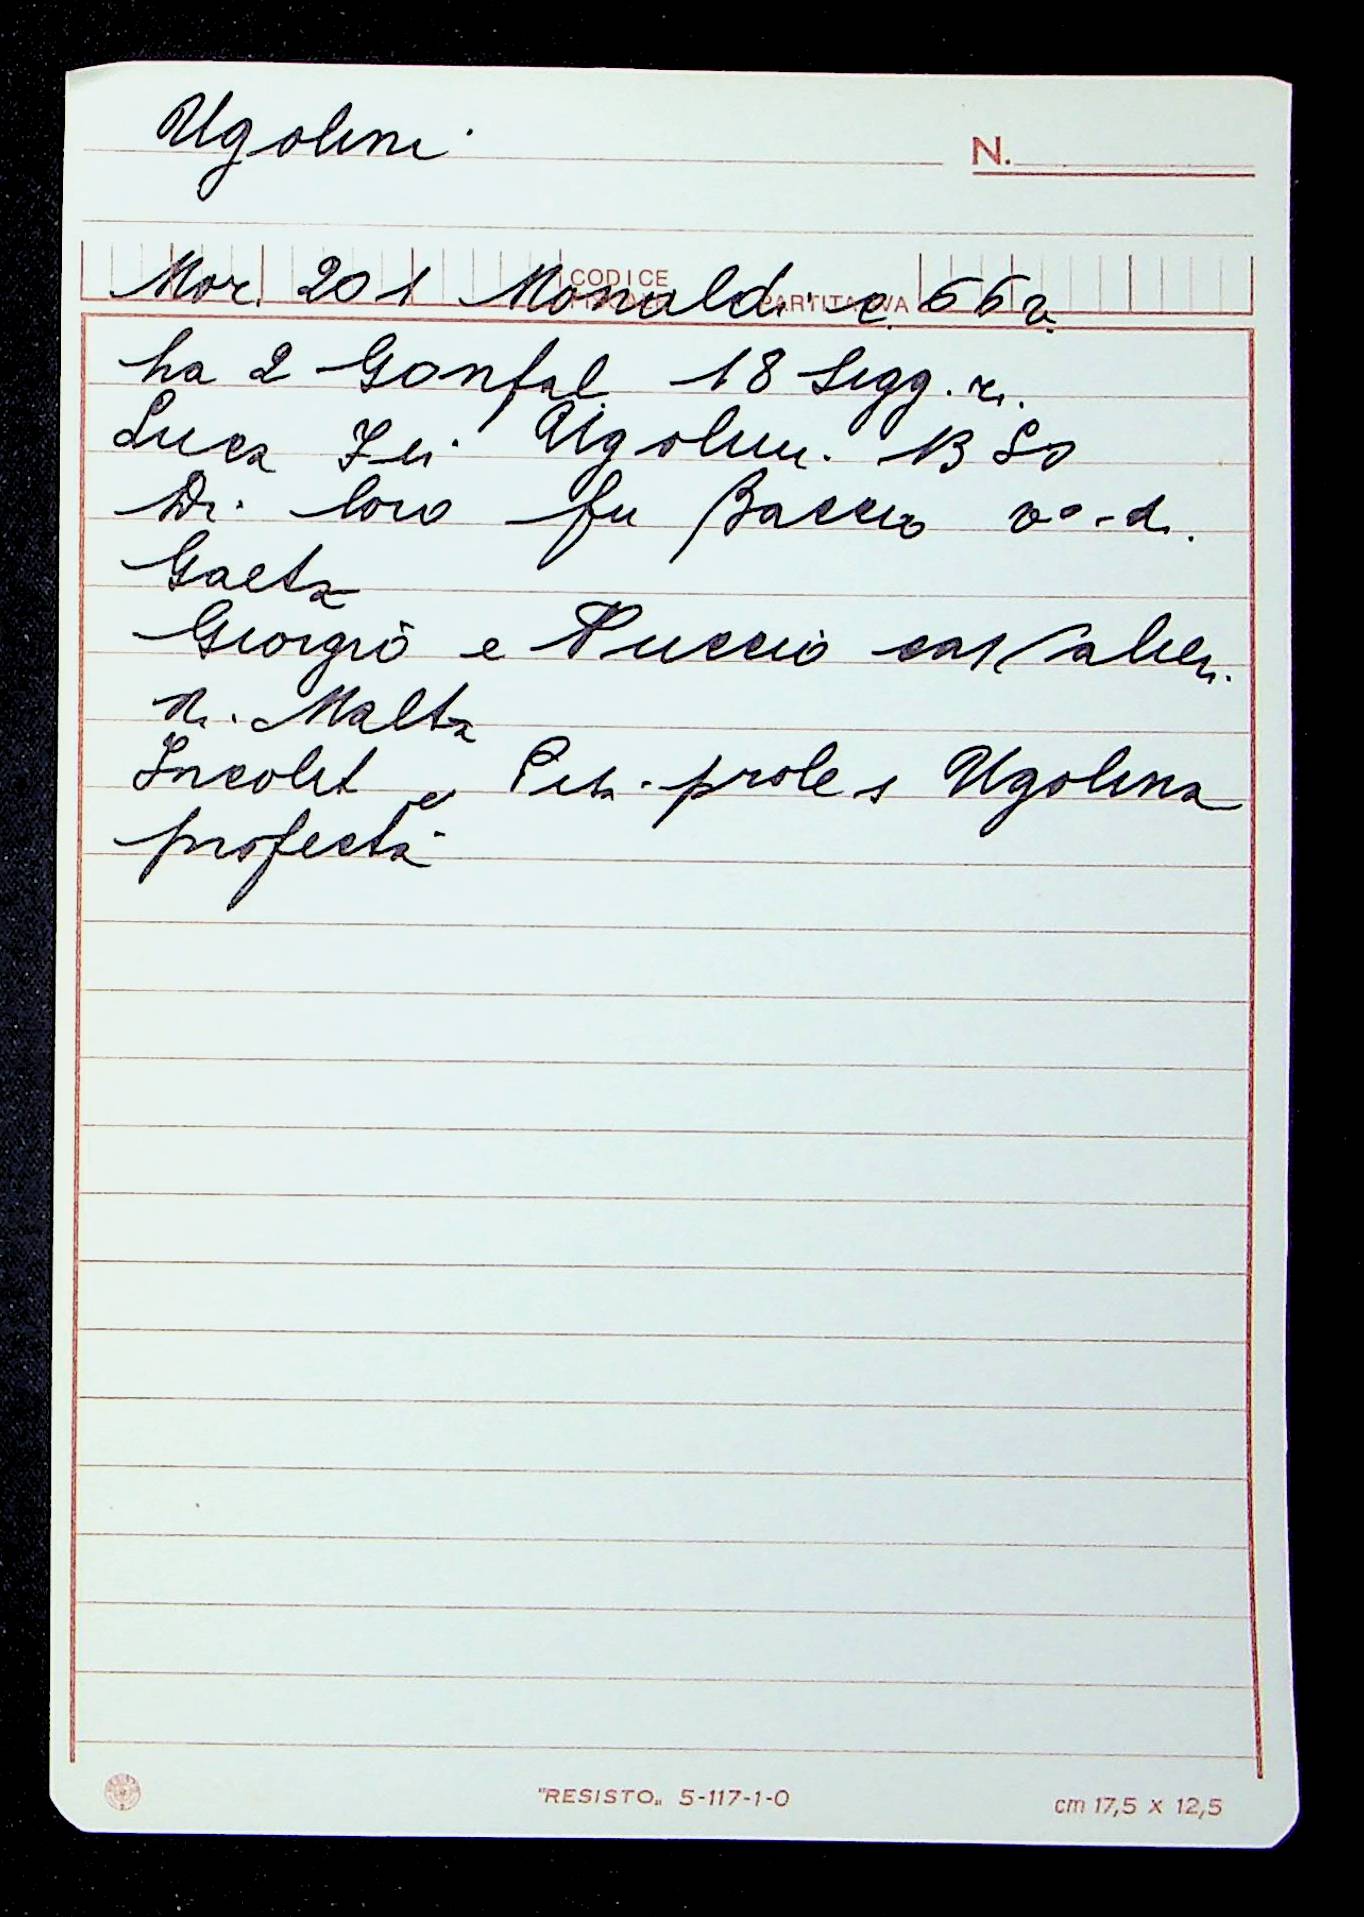 Ugolini
N.
CODICE
PARTITA IVA
Mor. 201 Monaldi c. 66v.
ha 2 Gonfal. 18 Sigg.ri.
Luca Fei Ugolini. 13
Di loro fu Baccio vo. di.
Gaeta
Giorgio e Puccio cavalieri.
di. Malta
Incolit proles Ugolina
profecta
"RESISTO„ 5-117-1-0
cm 17,5 x 12,5